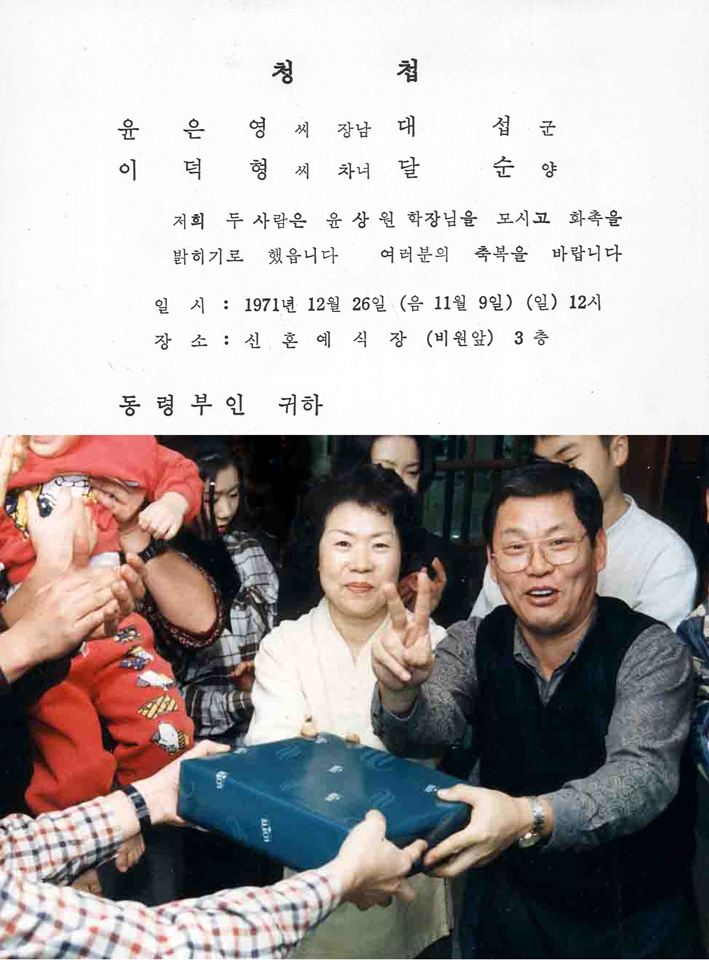 청 첩
윤 은 영 씨 장남 대 섭 군
이 덕 형 씨 차녀 달 순 양
저희 두 사람은 윤 상 원 학장님을 모시고 화촉을
밝히기로 했읍니다 여러분의 축복을 바랍니다
일 시 : 1971년 12월 26일 (음 11월 9일) (일) 12시
장 소 : 신 혼 예 식 장 (비원앞) 3 층
동 령 부 인 귀하